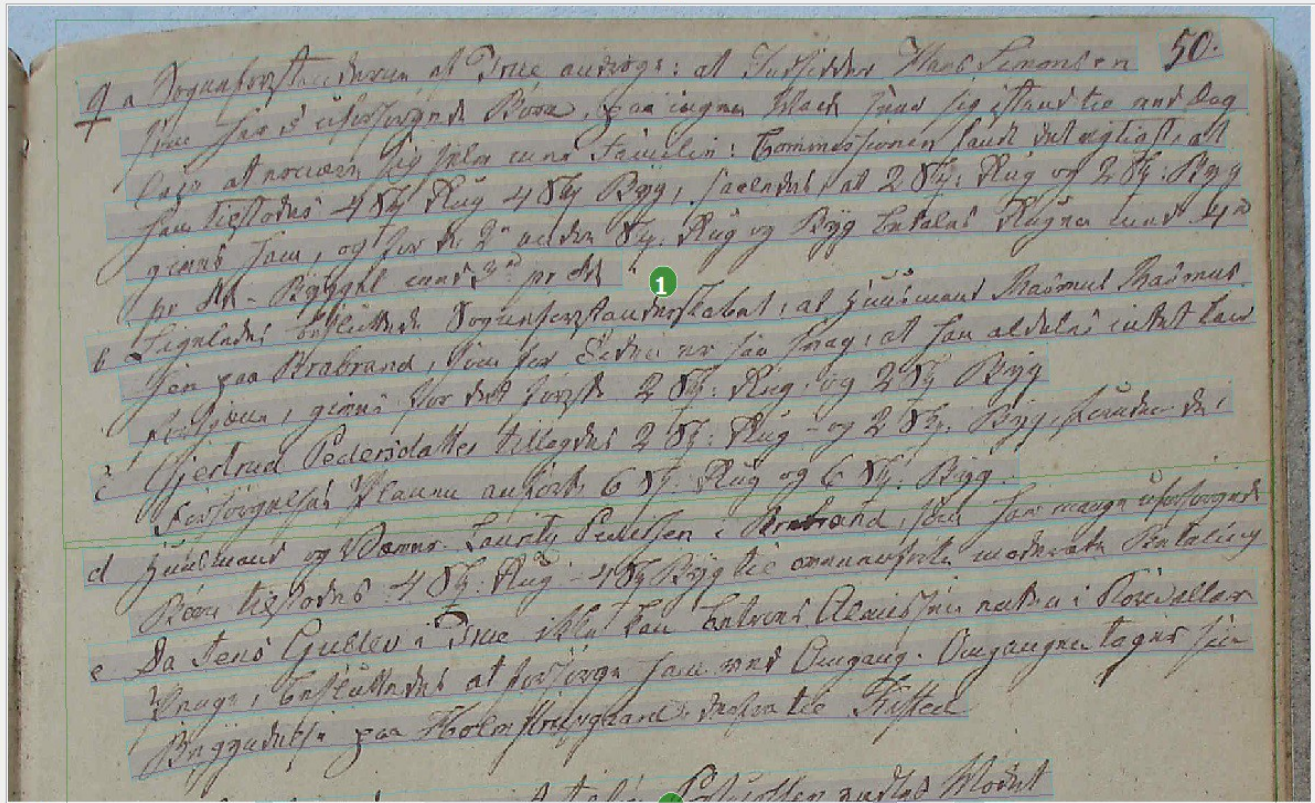 50.
9 a Sognforstanderen af True androge: at Indsidder Hans Simonsen
som har 5 uforsørgede Børn, paa ingen Maade saae sig istand til ved Dag
leie at ernære sig selv med Familie: Commissionen fandt det rigtigst, at
ham tilstodes 4 Skp Rug 4 Skp Byg, saaledes, at 2 Skp: Rug og 2 Skp: Byg
gives ham, og for de 2de andre Skp. Rug og Byg betales Rugen med 4
pr Skp - Bygget med 3 pr Skp
b Ligeledes besluttede Sognforstanderskabet, at Huusmand Rasmus Rasmus
sen paa Brabrand, som for Tiden er saa svag, at han aldeles intet kan
fortjene, gives for det første 2 Skp: Rug, og 2 Skp Byg
c Gjertrud Pedersdatter tillægges 2 Skp: Rug - og 2 Skp. Byg, foruden de i
Forsørgelses Planen anførte 6 Skp. Rug og 6 Skp: Byg.
d Huusmand og Væver Laurits Poulsen i Brabrand, som har mange uforsørgede
Børn tilstodes 4 Skp: Rug - 4 Skp Byg til ovenanførte moderate Betaling
e Da Jens Gudlev i True ikke kan betroes Almisse in natura i
, besluttedes at forsørge ham ved Omgang. Omgangen tager sin
Begyndelse paa Holmstrupgaard, derfra til